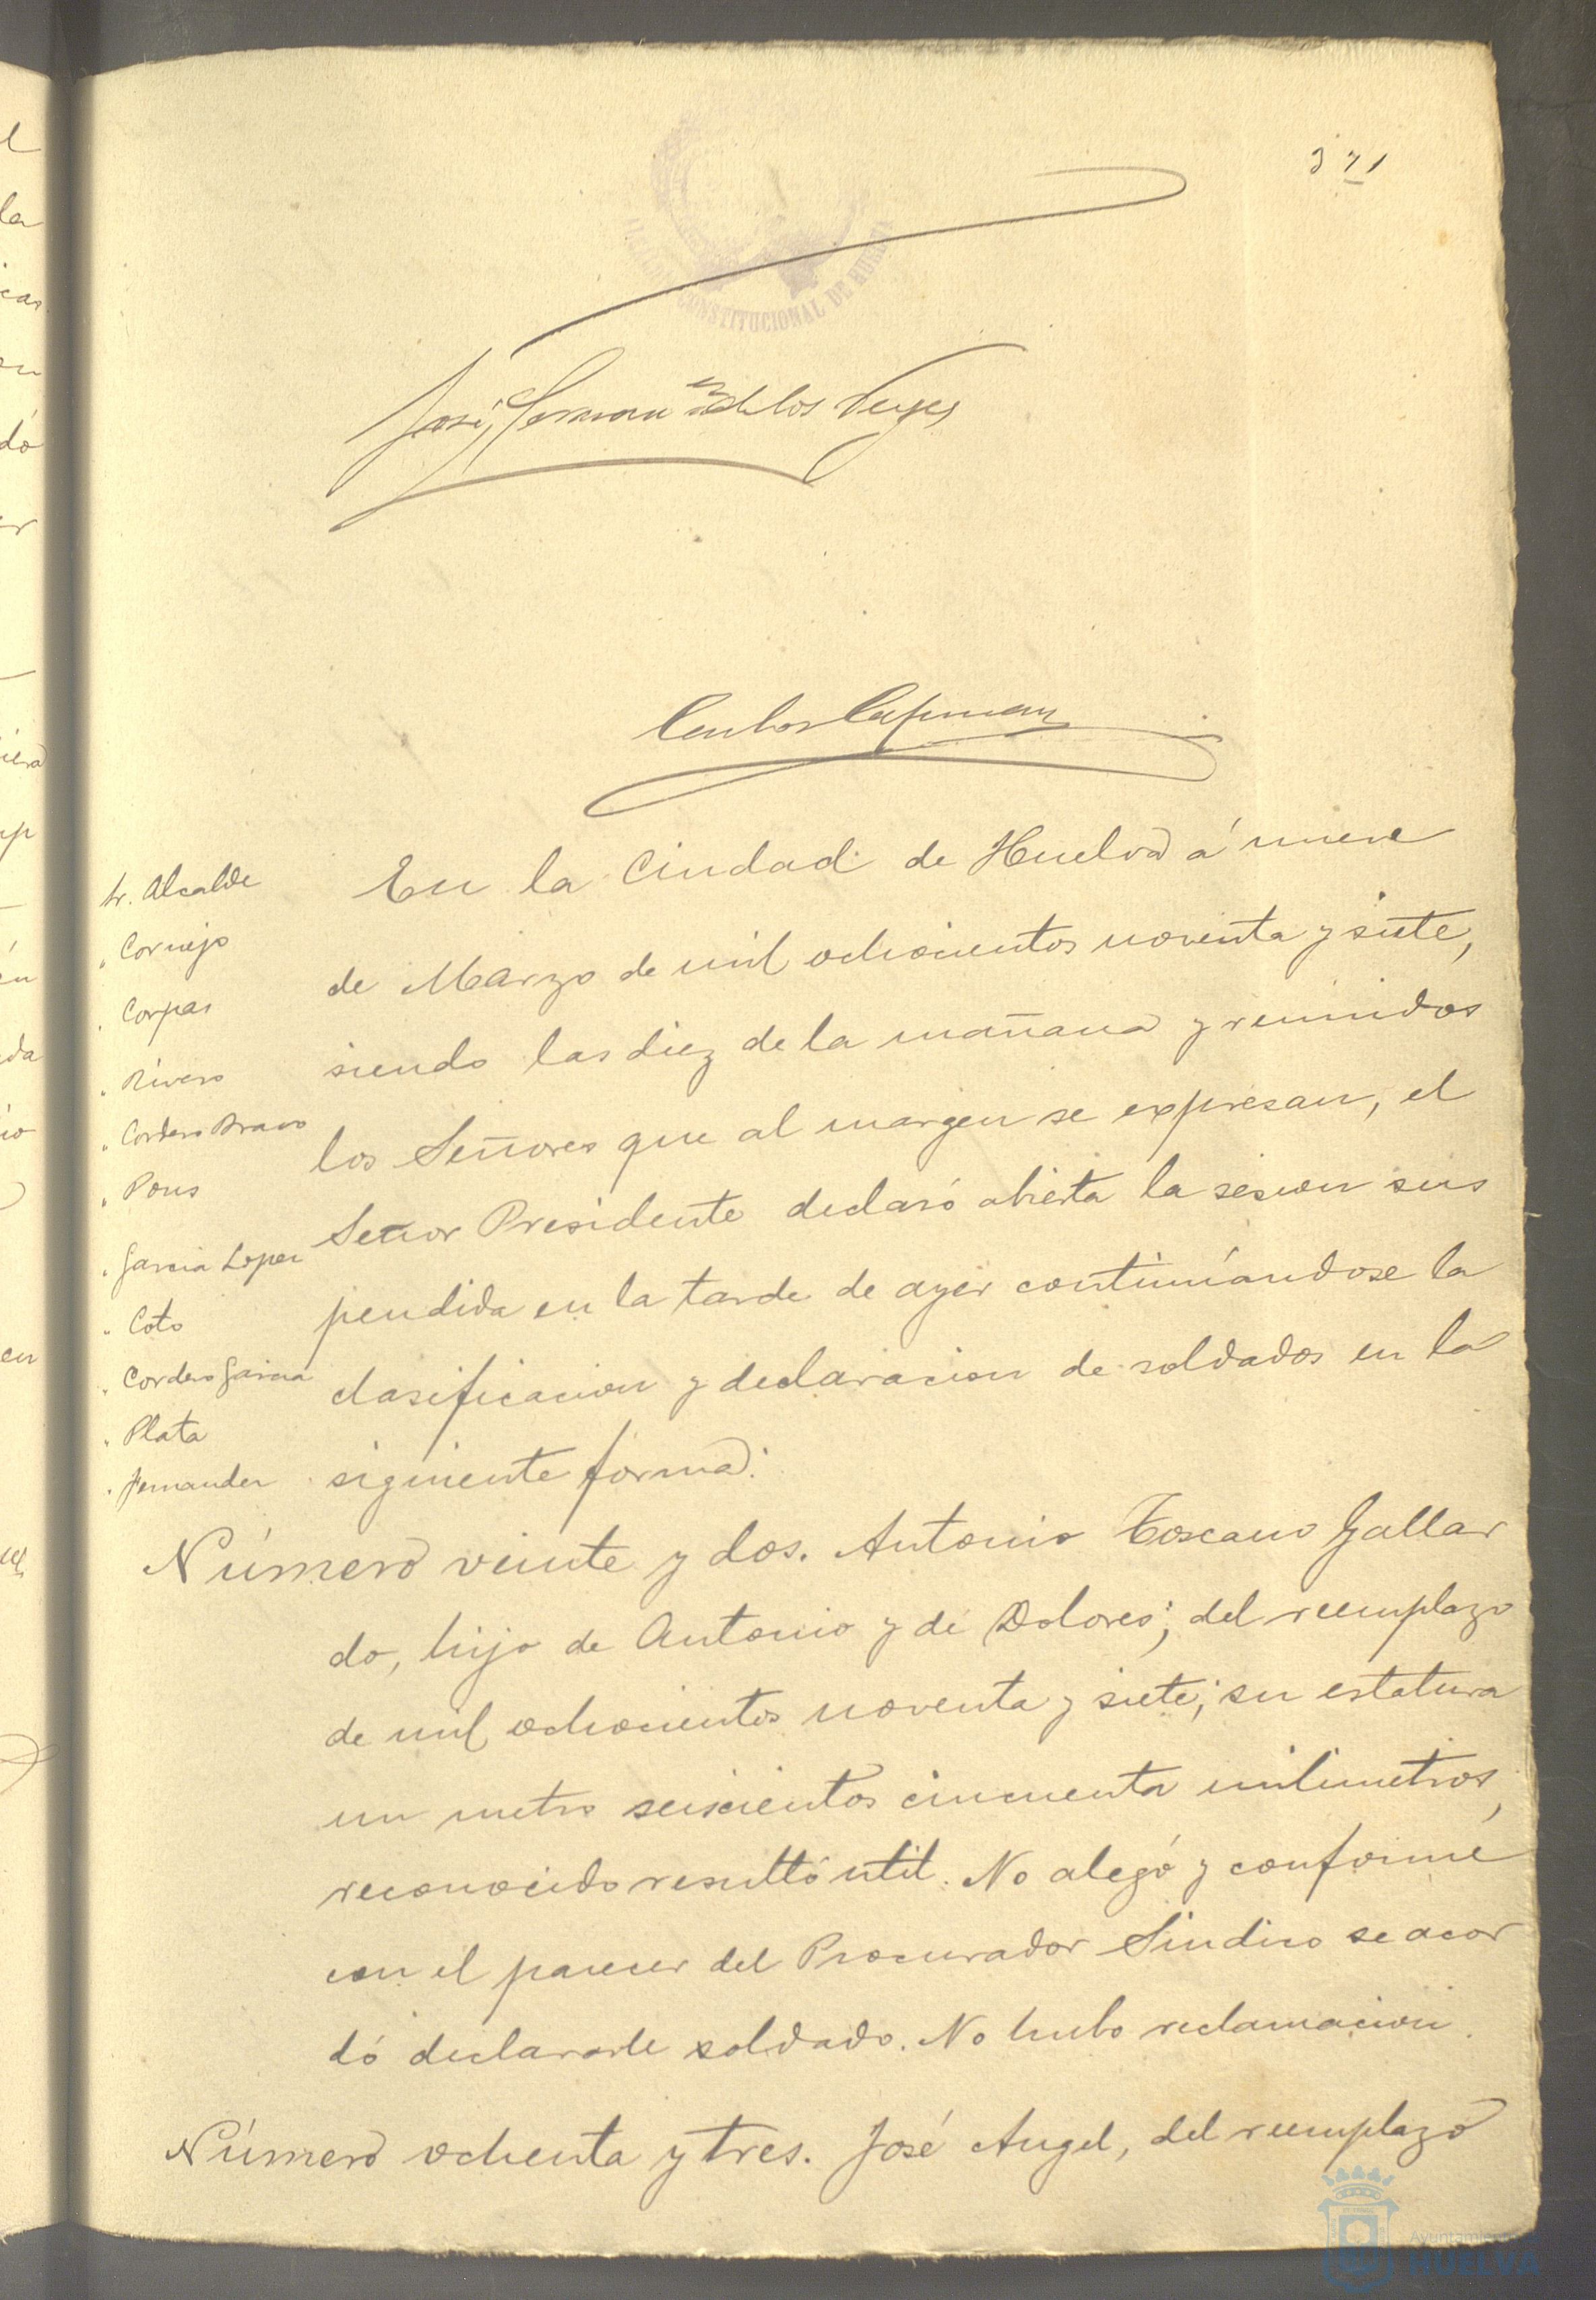 371
CONSTITUCIONAL DE HUELVA
José de los
Carlos
Sr. Alcalde
" Cornejo
" Corpas
" Rivero
" Cordero Bravo
" Pons
" Garcia Lopez
" Coto
" Cordero Garcia
" Plata
" Fernandez
En la Ciudad de Huelva á nueve
de Marzo de mil ochocientos noventa y siete,
siendo las diez de la mañana y reunidos
los Señores que al margen se expresan, el
Señor Presidente declaró abierta la sesion sus
pendida en la tarde de ayer continuándose la
clasificacion y declaracion de soldados en la
siguiente forma:
Número veinte y dos. Antonio Toscano Gallar
do, hijo de Antonio y de Dolores; del reemplazo
de mil ochocientos noventa y siete; su estatura
un metro seiscientos cincuenta milimetros,
reconocido resultó util. No alegó y conforme
con el parecer del Procurador Sindico se acor
dó declararle soldado. No hubo reclamacion.
Número ochenta y tres. José Angel, del reemplazo
Ayuntamiento
HUELVA